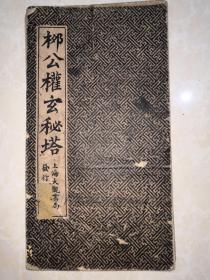 柳公權玄秘塔
上海大觀書局
發行